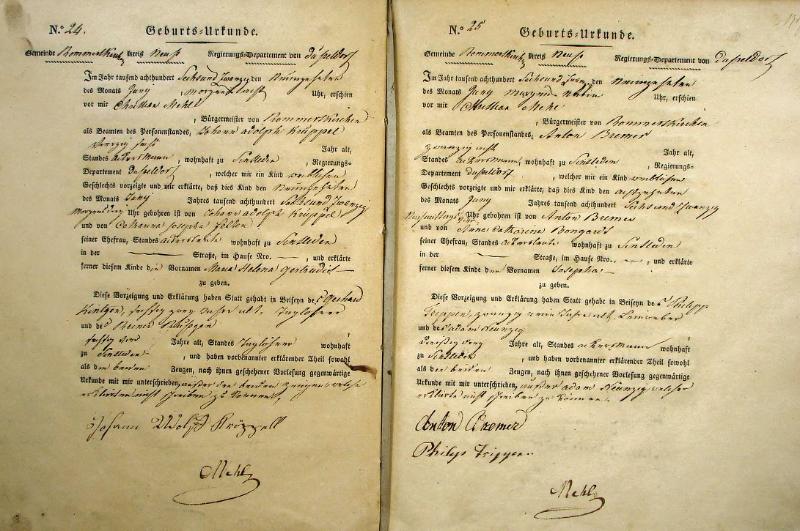 N.º 24.
Geburts-Urkunde.
Gemeinde Rommerskirch Kreis Neuß Regierungs-Departement von Düsseldorf
Im Jahr tausend achthundert Sechs und zwanzig den Neunzehnten
des Monats Juny Uhr, erschien
vor mir Christian Mehl
, Bürgermeister von Rommerskirchen
als Beamten des Personenstandes, Johann Adolph Krüppel
vierzig Jahr alt,
Standes Ackersmann, wohnhaft zu Sinsteden, Regierungs-
Departement Düsseldorf, welcher mir ein Kind weiblichen
Geschlechts vorzeigte und mir erklärte, daß dies Kind den Neunzehnten
des Monats Juny Jahres tausend achthundert Sechs und zwanzig
Uhr gebohren ist von Johann Adolph Krüppel
und von Catharina Josepha
seiner Ehefrau, Standes Ackersleute wohnhaft zu Sinsteden
in der Straße, im Hause Nro. , und erklärte
ferner diesem Kinde den Vornamen Maria Helena Gertrudis
zu geben.
Diese Vorzeigung und Erklärung haben Statt gehabt in Beiseyn des Gerhard
alt, Taglöhner
und des
Jahre alt, Standes Taglöhner wohnhaft
zu Sinsteden, und haben vorbenannter erklärender Theil sowohl
als die beiden Zeugen, nach ihnen geschehener Vorlesung gegenwärtige
Urkunde mit mir unterschrieben, außer den beiden Zeugen, welche
erklärten nicht schreiben zu können.
Johann Adolph Krüppell
Mehl
N.º 25
Geburts-Urkunde.
Gemeinde Rommerskirch Kreis Neuss Regierungs-Departement von Düsseldorf
Im Jahr tausend achthundert Sechs und zwanzig den Neunzehnten
des Monats Juny Uhr, erschien
vor mir Christian Mehl
, Bürgermeister von Rommerskirchen
als Beamten des Personenstandes, Anton Bremer
zwanzig acht Jahr alt,
Standes Ackersmann, wohnhaft zu Sinsteden, Regierungs-
Departement Düsseldorf, welcher mir ein Kind weiblichen
Geschlechts vorzeigte und mir erklärte, daß dies Kind den achtzehnten
des Monats Juny Jahres tausend achthundert Sechs und zwanzig
Uhr gebohren ist von Anton Bremer
und von Anna Catharina Bongardt
seiner Ehefrau, Standes Ackersleute wohnhaft zu Sinsteden
in der Straße, im Hause Nro. , und erklärte
ferner diesem Kinde den Vornamen Josepha
zu geben.
Diese Vorzeigung und Erklärung haben Statt gehabt in Beiseyn des Philipp
zwanzig Jahr alt,
und des Adam
dreißig Jahre alt, Standes Ackersmann wohnhaft
zu Sinsteden, und haben vorbenannter erklärender Theil sowohl
als die beiden Zeugen, nach ihnen geschehener Vorlesung gegenwärtige
Urkunde mit mir unterschrieben, außer Adam welcher
erklärte nicht schreiben zu können.
Anton Bremer
Philip
Mehl